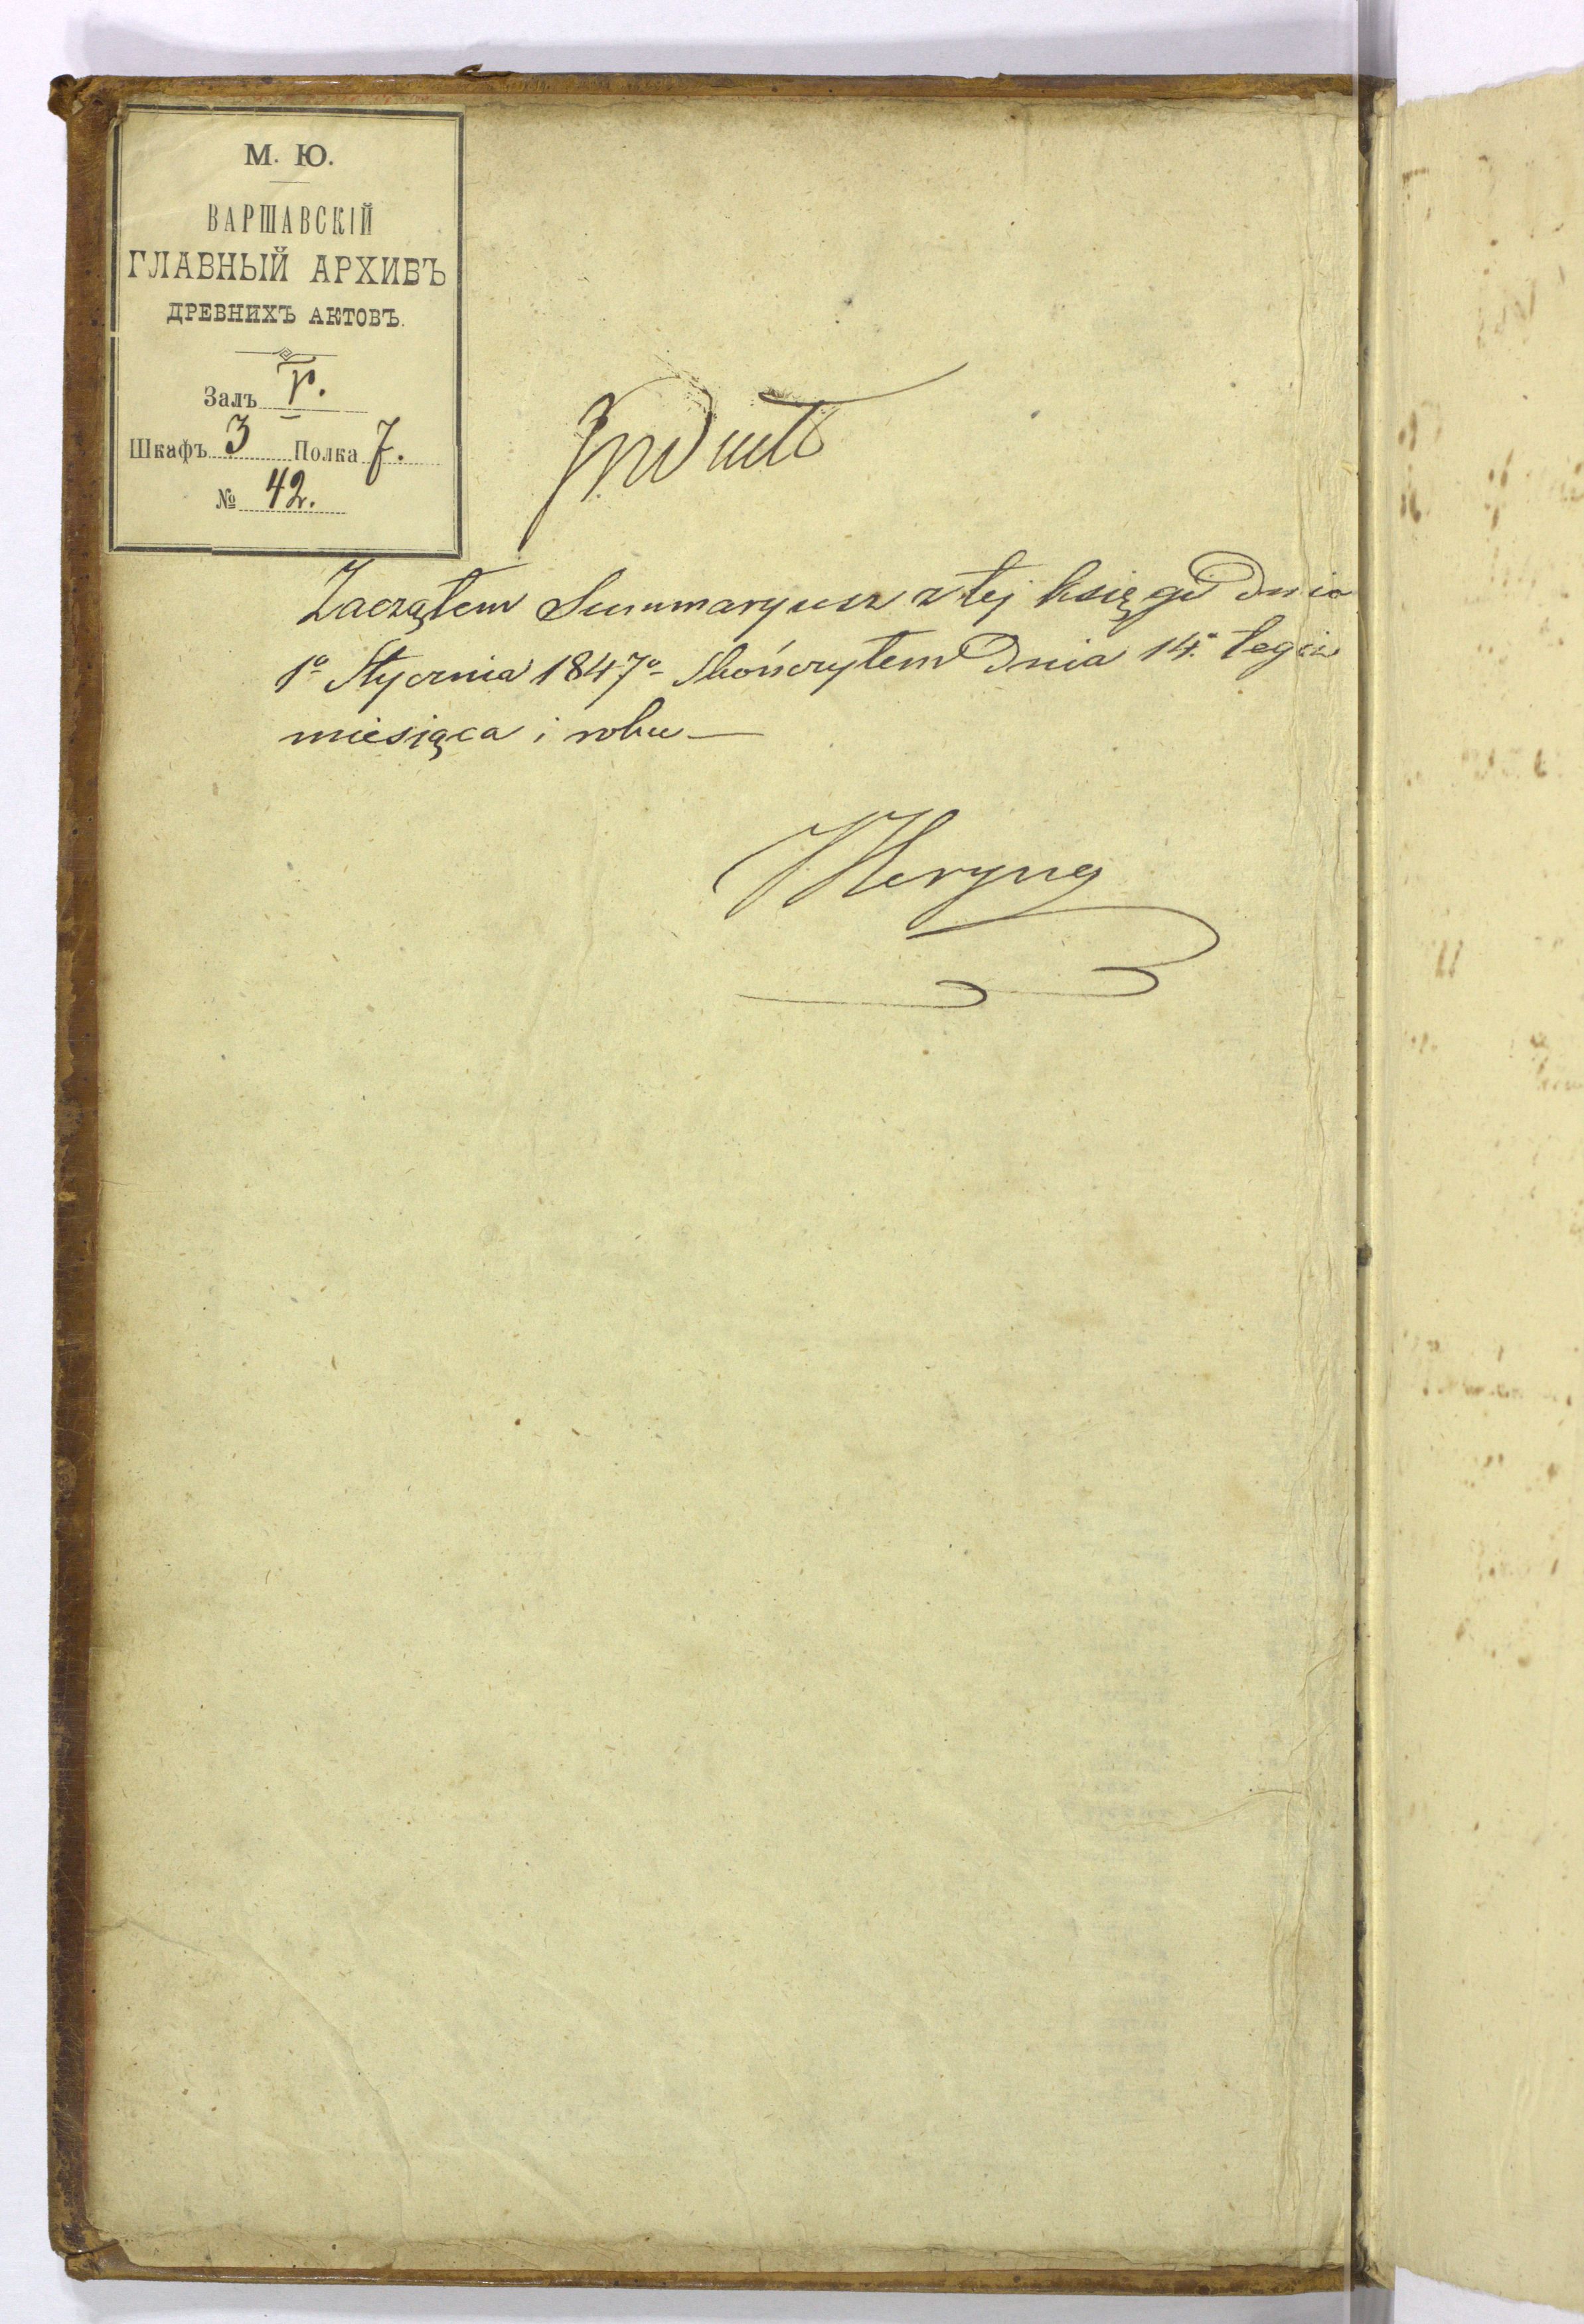 М. Ю.
ВАРШАВСКІЙ
ГЛАВНЫЙ АРХИВЪ
ДРЕВНИХЪ АКТОВЪ.
Залъ V.
Шкафъ 3 Полка 7.
№ 42.
Indult
Zacząłem Summaryusz z tej księgi Dnia
1º Stycznia 1847º Skończyłem Dnia 14º tegoż
miesiąca i roku —
Heryng